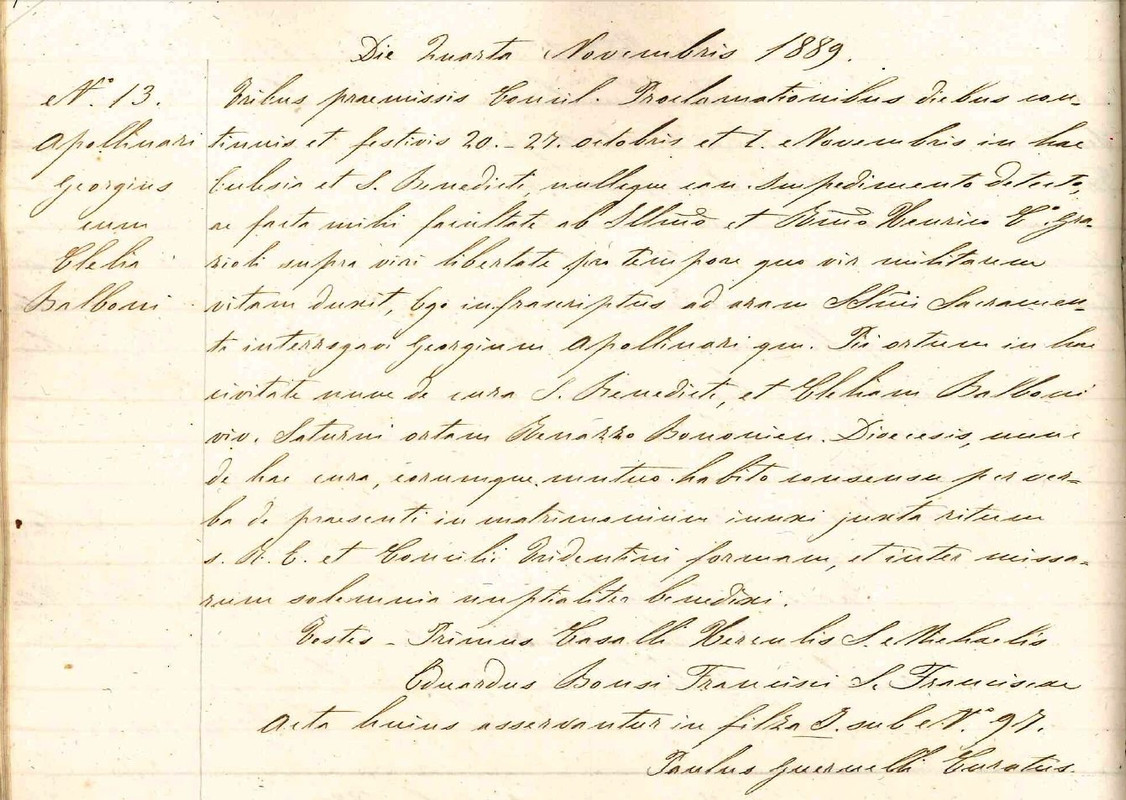 Die Quarta Novembris 1889.
N.° 13.
Apollinari
Georgius
cum
Clelia
Balboni
Tribus praemissis Concil. Proclamationibus diebus con-
tinuis et festivis 20.-27. octobris et 1. Novembris in hac
Ecclesia et S. Benedicti, nulloque can. Impedimento detecto,
ac facta mihi facultate ab Illmo et Rmo Henrico C.° Gra-
zioli supra viri libertate pro tempore quo vir militarem
vitam duxit, Ego infrascriptus ad aram SSmi Sacramen-
ti interrogavi Georgium Apollinari qm. Pii ortum in hac
civitate nunc de cura S. Benedicti, et Cleliam Balboni
viv. Saturni ortam Renazzo Bononien. Dioecesis, nunc
de hac cura, eorumque mutuo habito consensu per ver-
ba de praesenti in matrimonium iunxi juxta ritum
s. R. E. et Concilii Tridentini formam, et inter missa-
rum solemnia nuptialiter benedixi.
Testes - Primus Casalli Herculis S. Michaelis
Eduardus Bonsi Francisci S. Franciscae
Acta huius asservantur in filza I. sub N.° 97.
Paulus Guernelli Curatus.